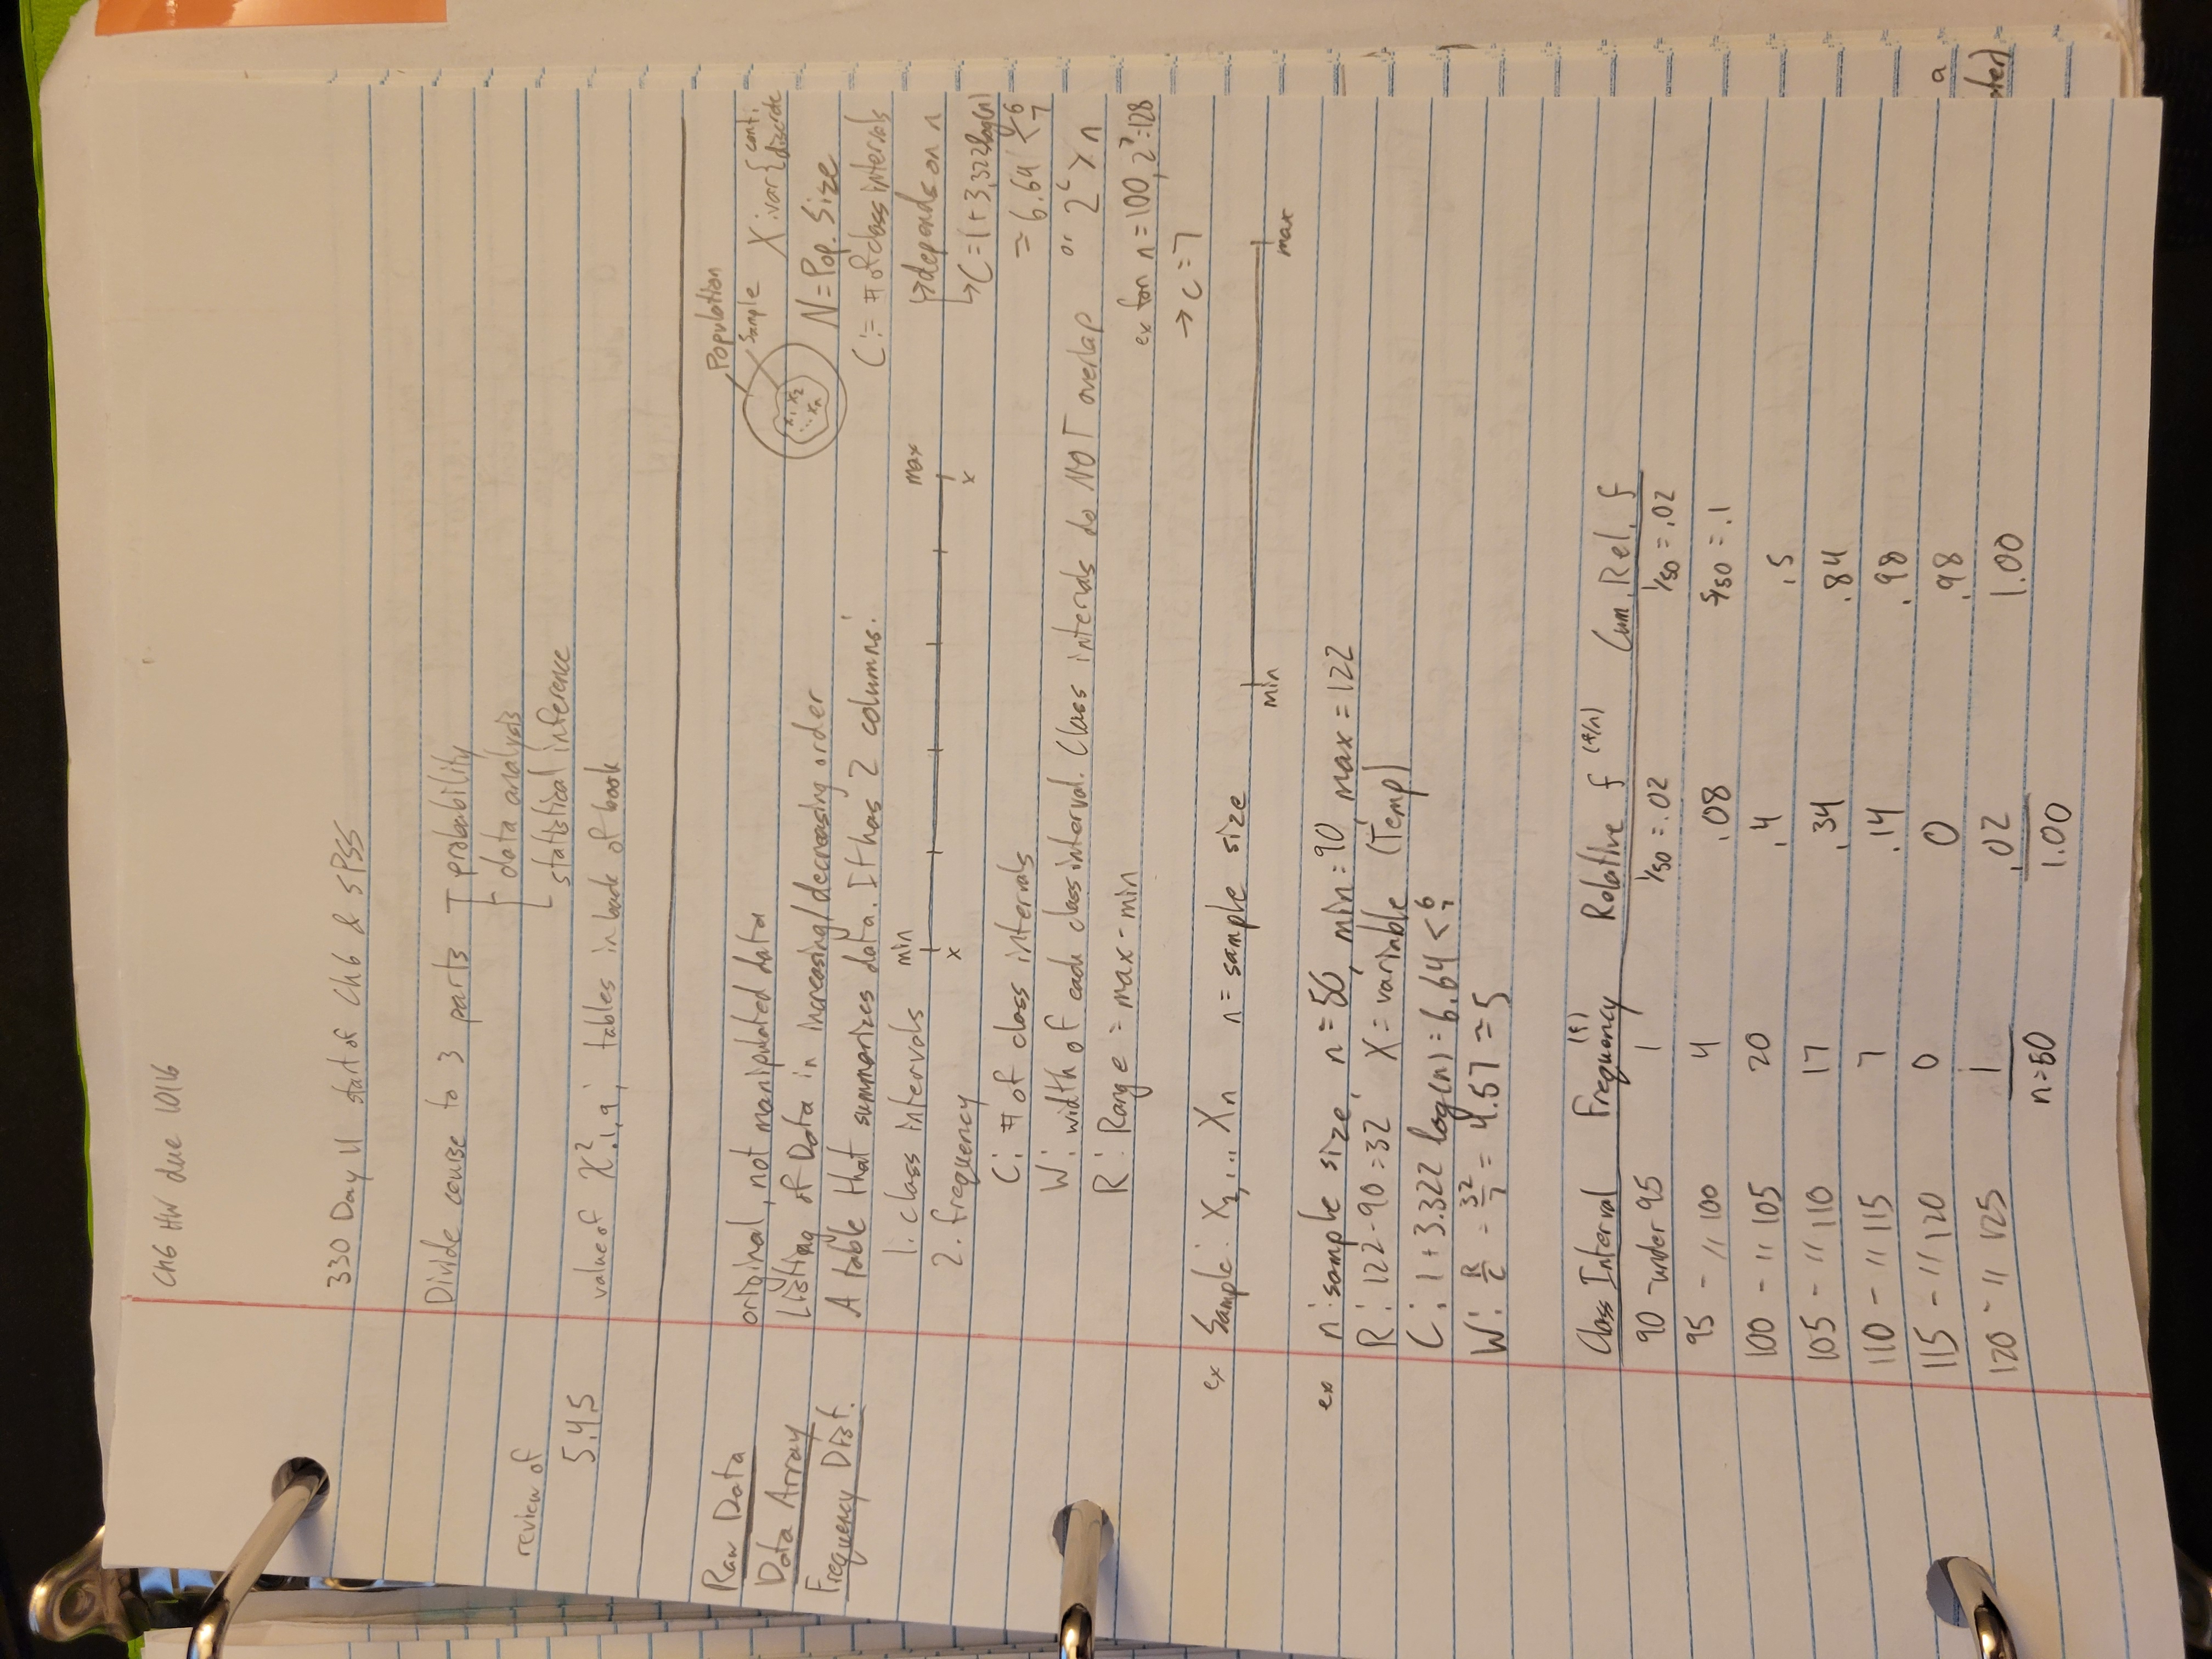 Ch6 HW due 10/16
330 Day 11 start of Ch6 & SPSS
Divide course to 3 parts probability
data analysis
statistical inference
review of
5.45 value of χ².1,9; tables in back of book
Raw Data original, not manipulated data
Data Array Listing of Data in increasing/decreasing order
Frequency Dist. A table that summarizes data. It has 2 columns:
1. class intervals min max
x x
2. frequency
C: # of class intervals
W: width of each class interval. Class intervals do NOT overlap
R: Range = max-min
Population
Sample
x₁ x₂
... xₙ
X:var{ cont.
discrete
N=Pop. Size
C:= # of class intervals
↳depends on n
↳C=1+3.322log(n)
= 6.64 < 6
7
or 2ᶜ > n
ex for n=100, 2⁷=128
→ c=7
ex Sample: X₂,... Xn n= sample size
min max
ex n: sample size, n=50, min=90, max=122
R: 122-90=32 X= variable (Temp)
C: 1+3.322 log(n)=6.64 < 6
7
W: R/C = 32/7 = 4.57 ≃ 5
Class Interval Frequency (f) Relative f (f/n) Cum. Rel. f
90 -under 95 1 1/50 = .02 1/50 = .02
95 - " 100 4 .08 5/50 = .1
100 - " 105 20 .4 .5
105 - " 110 17 .34 .84
110 - " 115 7 .14 .98
115 - " 120 0 0 .98
120 - " 125 1 .02 1.00
n=50 1.00
a